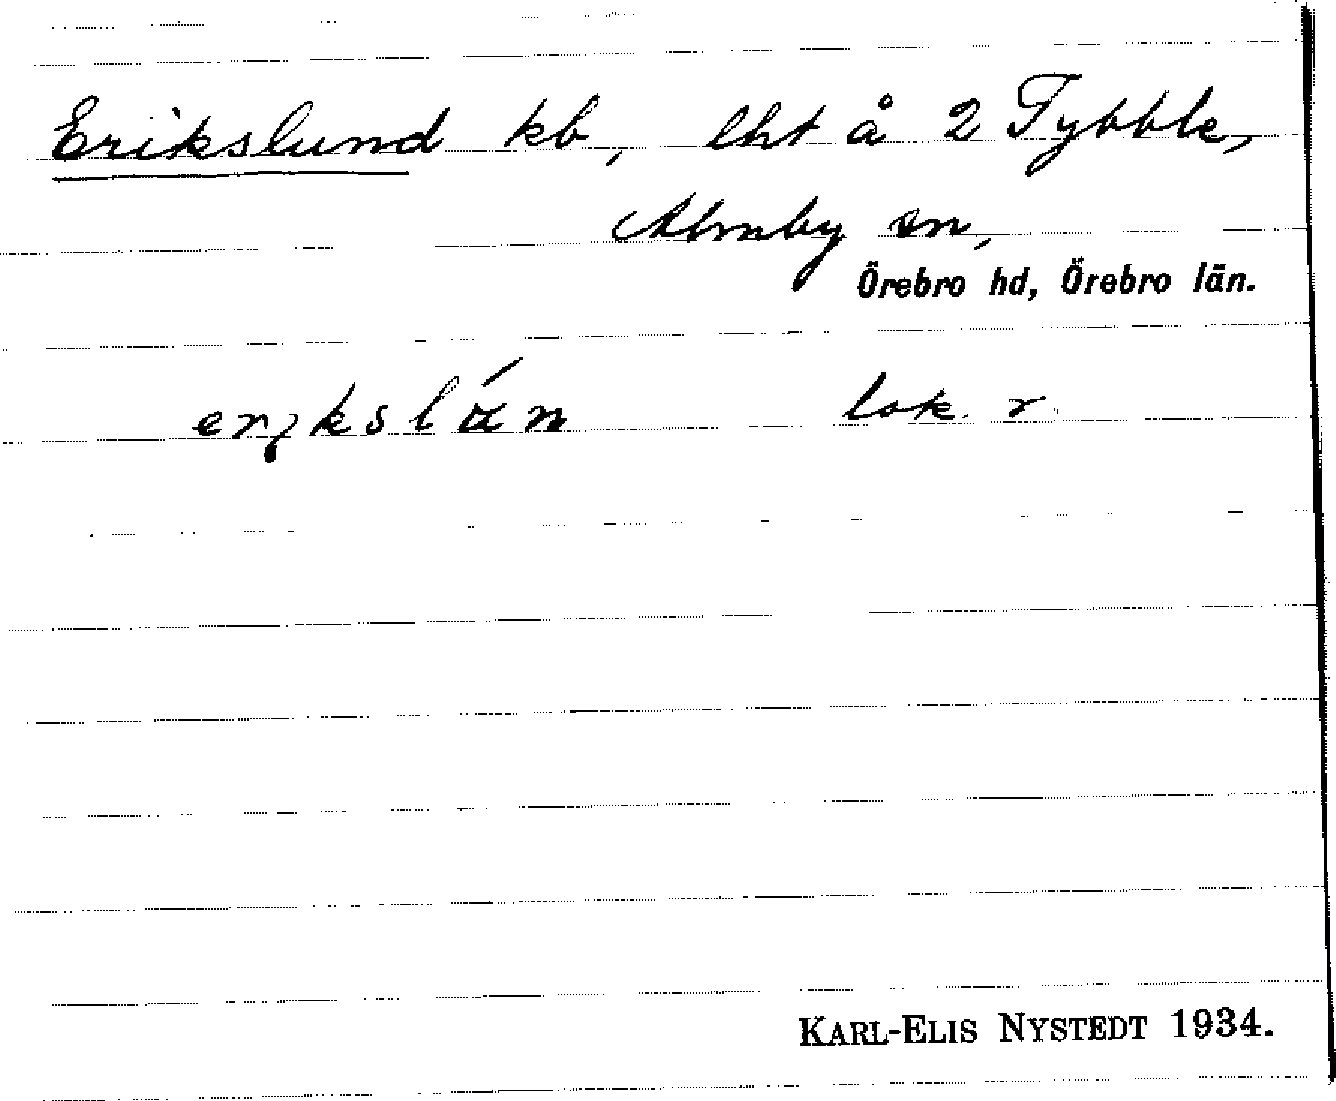 Erikslund kb, lht å 2 Tybble,
Almby sn,
Örebro hd, Örebro län.
lok. r
KARL-ELIS NYSTEDT 1934.